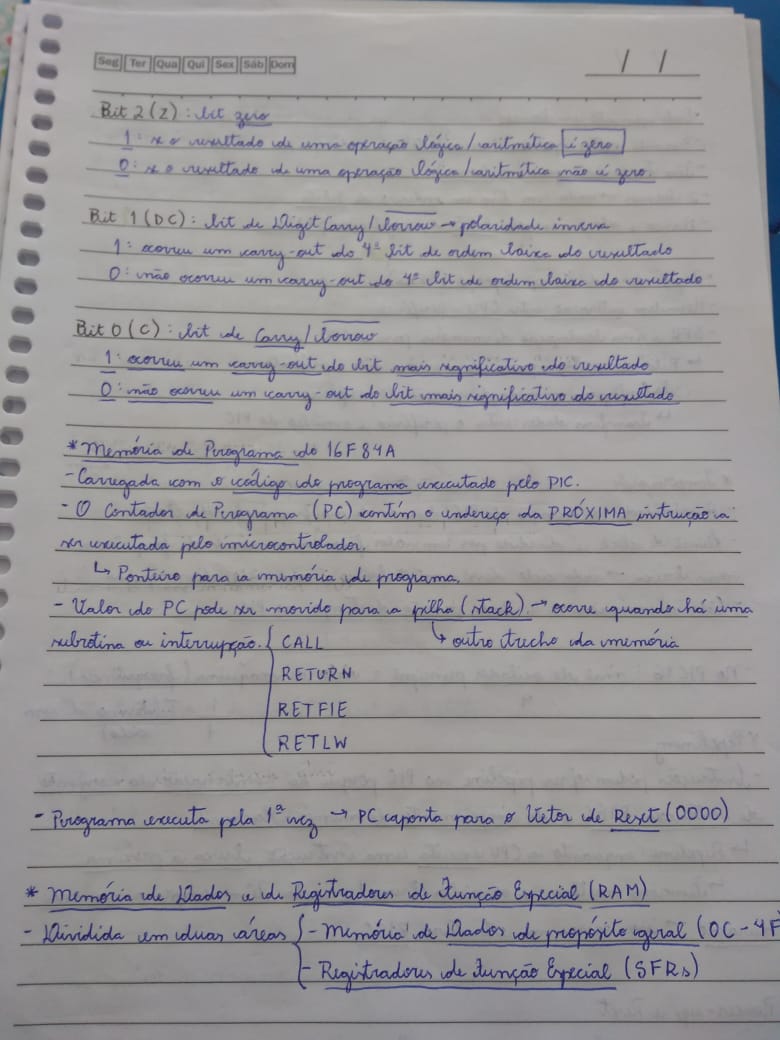 Seg Ter Qua Qui Sex Sáb Dom
/ /
Bit 2 (Z) : bit zero
1 : se o resultado de uma operação lógica/aritmética é zero.
0 : se o resultado de uma operação lógica/aritmética não é zero.
Bit 1 (DC) : bit de Diget Carry/borrow → polaridade inversa
1 : ocorreu um carry-out do 4º bit de ordem baixa do resultado
0 : não ocorreu um carry-out do 4º bit de ordem baixa do resultado
Bit 0 (C) : bit de Carry/borrow
1 : ocorreu um carry-out do bit mais significativo do resultado
0 : não ocorreu um carry-out do bit mais significativo do resultado
* Memória de Programa do 16F84A
- Carregada com o código do programa executado pelo PIC.
- O Contador de Programa (PC) contém o endereço da PRÓXIMA instrução a
ser executada pelo microcontrolador.
↳ Ponteiro para a memória de programa.
- Valor do PC pode ser movido para a pilha (stack) → ocorre quando há uma
subrotina ou interrupção. { CALL ↳ outro trecho da memória
RETURN
RETFIE
RETLW
- Programa executa pela 1ª vez → PC aponta para o Vetor de Reset (0000)
* Memória de Dados e de Registradores de Função Especial (RAM)
- Dividida em duas áreas { - Memória de Dados de propósito geral (0C - 4F
- Registradores de Função Especial (SFRs)